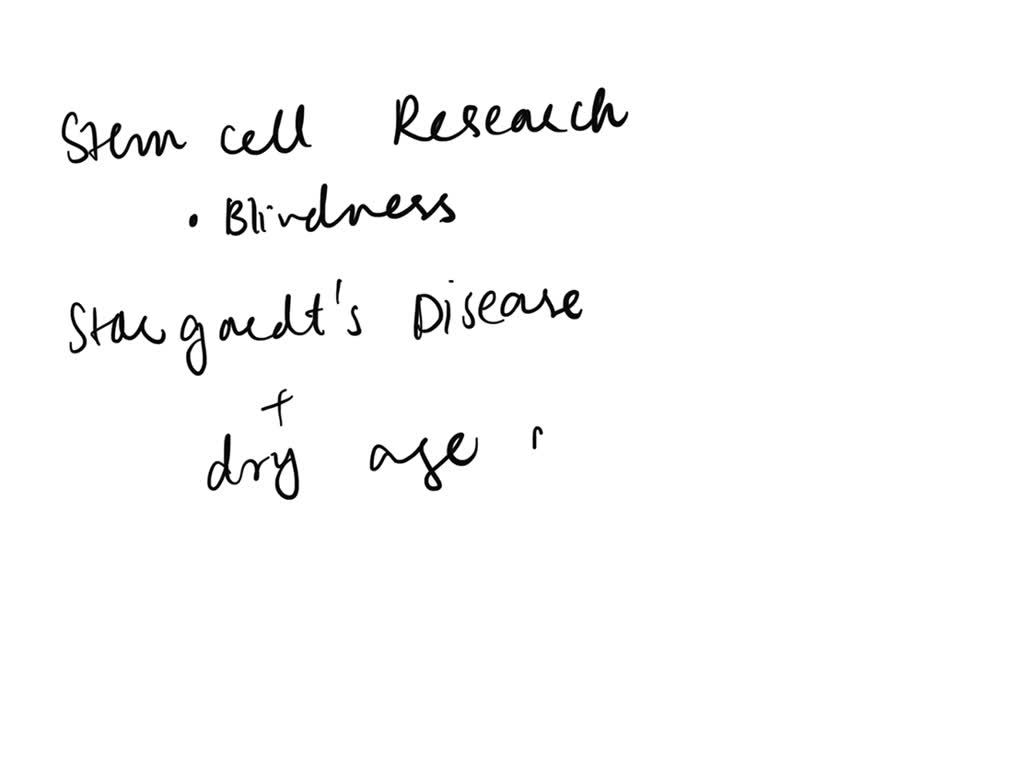 Stem cell Research
• Blindness
Stargardt's Disease
+
dry age r